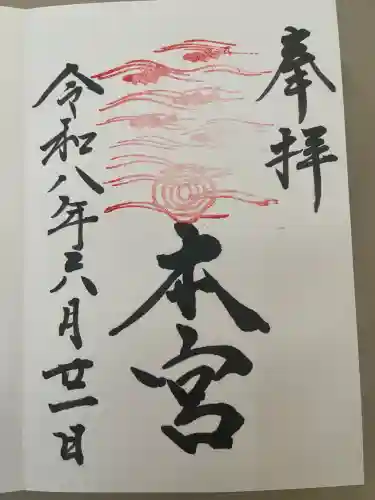 奉拝
本宮
令和八年六月廿一日